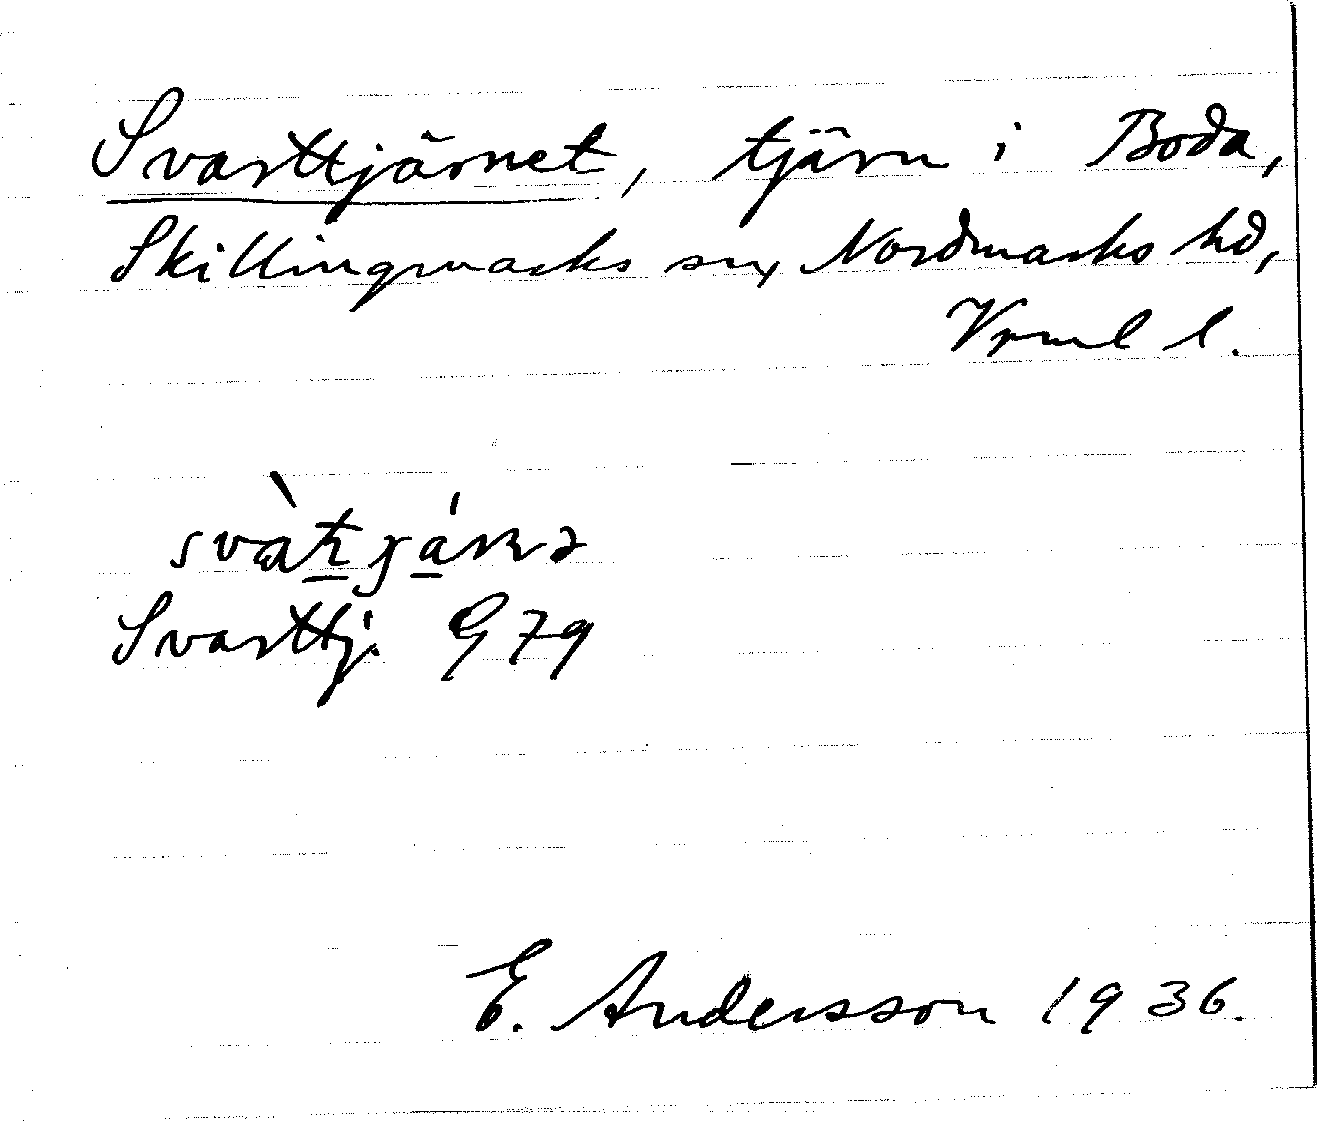 Svarttjärnet, tjärn i Boda,
Skillingmarks sn, Nordmarks hd,
Vrml l.
Svarttj. G 79
E. Andersson 1936.